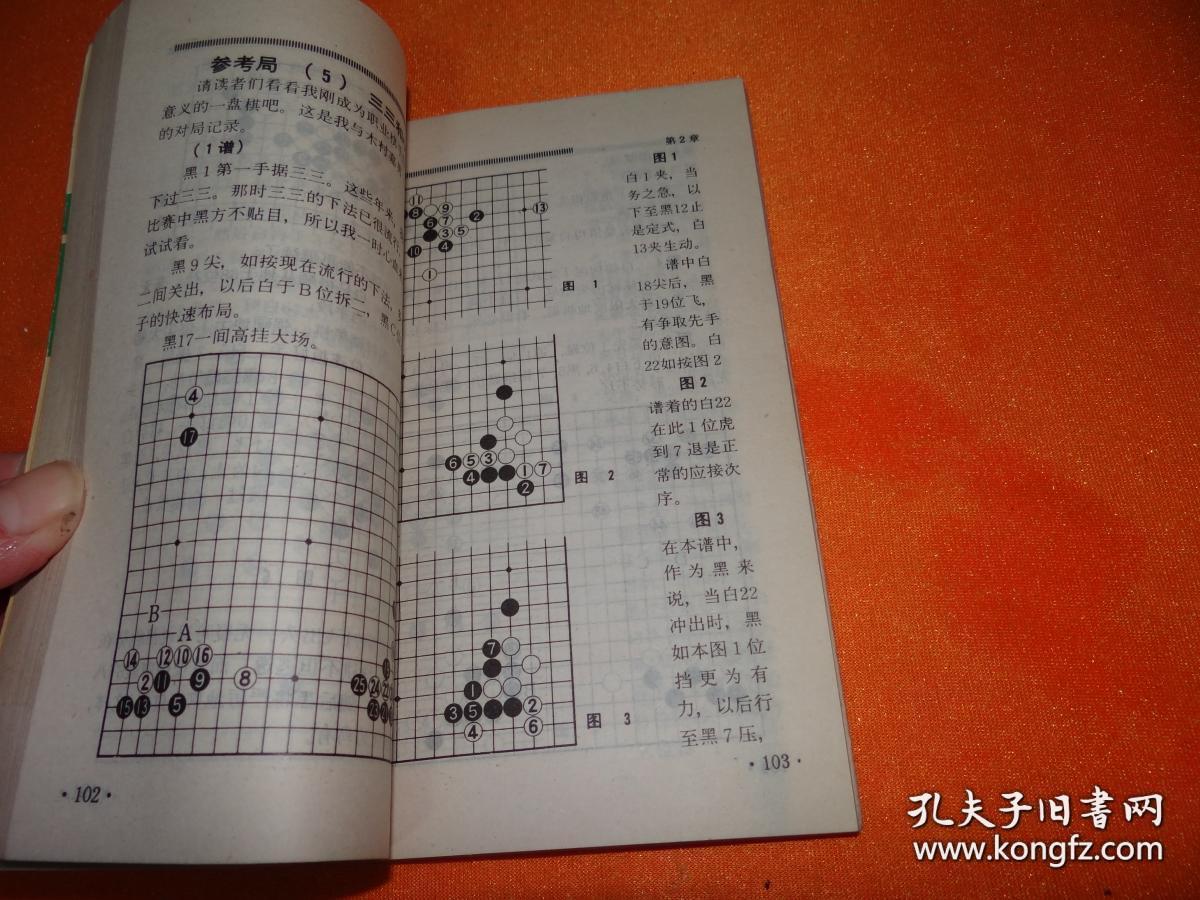 参考局 (5) 三三
请读者们看看我刚成为职业棋
意义的一盘棋吧。这是我与木村
的对局记录。
(1谱)
黑1第一手据三三。这些年来,
下过三三。那时三三的下法已很流行,
比赛中黑方不贴目,所以我一时心血
试试看。
黑9尖,如按现在流行的下法,
二间关出,以后白于B位拆二,黑C
子的快速布局。
黑17一间高挂大场。
4
17
B
A
14 12 10 16
2 11 9 8
15 13 5
25 24
·102·
第2章
11
8 9 2 13
6 7
3 5
10 4
1
图 1
6 5 3 1 7
4 2
图 2
7
1
3 5 2
4 6
图 3
图1
白1夹,当
务之急,以
下至黑12止
是定式,白
13夹生动。
谱中白
18尖后,黑
于19位飞,
有争取先手
的意图。白
22如按图2
图2
谱着的白22
在此1位虎
到7退是正
常的应接次
序。
图3
在本谱中,
作为黑来
说,当白22
冲出时,黑
如本图1位
挡更为有
力,以后行
至黑7压,
·103·
孔夫子旧书网
www.kongfz.com